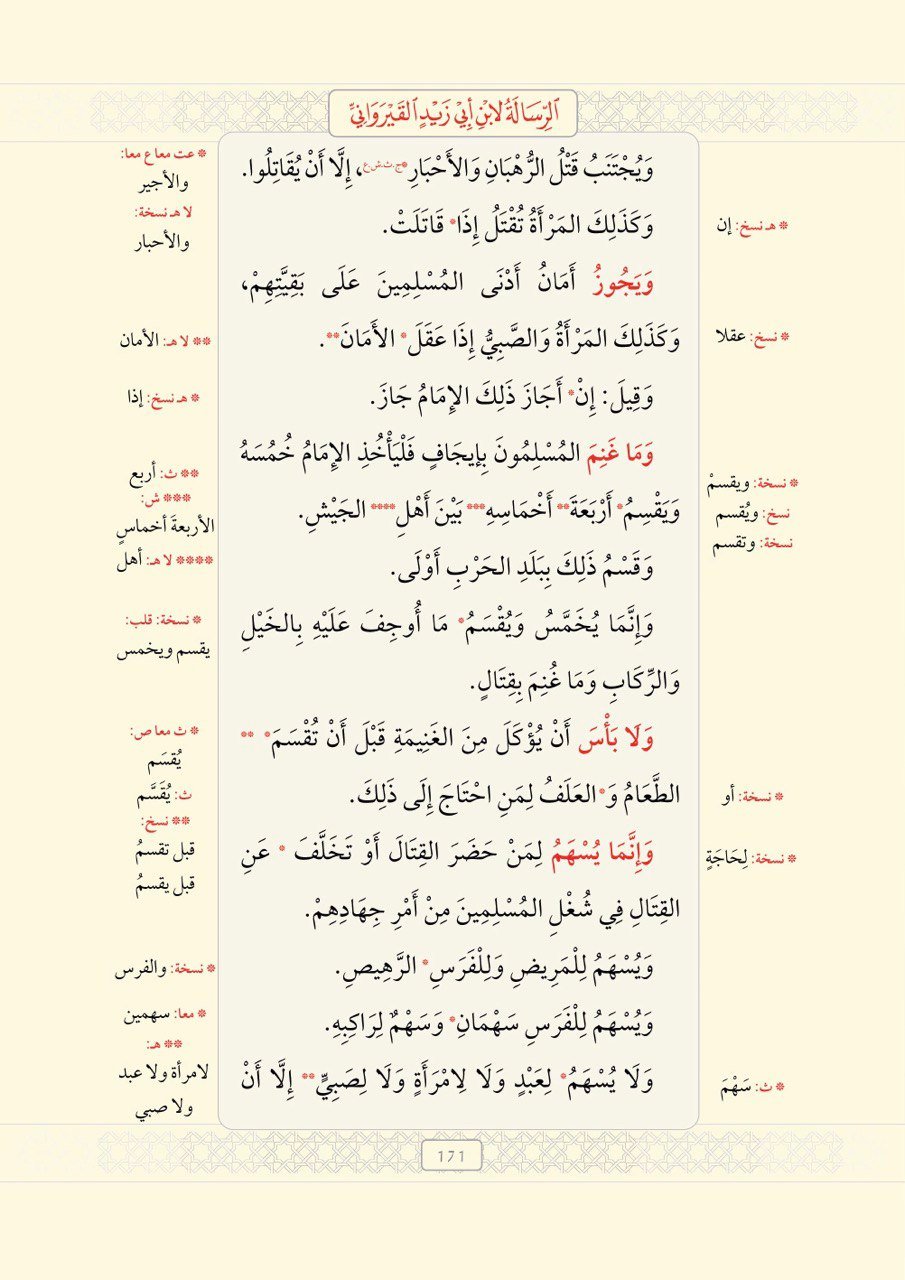 الرِّسَالَةُ لابْنِ أَبِي زَيْدٍ القَيْرَوَانِيِّ
وَيُجْتَنَبُ قَتْلُ الرُّهْبَانِ وَالأَحْبَارِ*ح.ث.ش.ع، إِلَّا أَنْ يُقَاتِلُوا.
وَكَذَلِكَ المَرْأَةُ تُقْتَلُ إِذَا* قَاتَلَتْ.
وَيَجُوزُ أَمَانُ أَدْنَى المُسْلِمِينَ عَلَى بَقِيَّتِهِمْ،
وَكَذَلِكَ المَرْأَةُ وَالصَّبِيُّ إِذَا عَقَلَ* الأَمَانَ**.
وَقِيلَ: إِنْ* أَجَازَ ذَلِكَ الإِمَامُ جَازَ.
وَمَا غَنِمَ المُسْلِمُونَ بِإِيجَافٍ فَلْيَأْخُذِ الإِمَامُ خُمُسَهُ
وَيَقْسِمُ* أَرْبَعَةَ** أَخْمَاسِهِ*** بَيْنَ أَهْلِ**** الجَيْشِ.
وَقَسْمُ ذَلِكَ بِبَلَدِ الحَرْبِ أَوْلَى.
وَإِنَّمَا يُخَمَّسُ وَيُقْسَمُ* مَا أُوجِفَ عَلَيْهِ بِالخَيْلِ
وَالرِّكَابِ وَمَا غُنِمَ بِقِتَالٍ.
وَلَا بَأْسَ أَنْ يُؤْكَلَ مِنَ الغَنِيمَةِ قَبْلَ أَنْ تُقْسَمَ* **
الطَّعَامُ وَ*العَلَفُ لِمَنِ احْتَاجَ إِلَى ذَلِكَ.
وَإِنَّمَا يُسْهَمُ لِمَنْ حَضَرَ القِتَالَ أَوْ تَخَلَّفَ * عَنِ
القِتَالِ فِي شُغْلِ المُسْلِمِينَ مِنْ أَمْرِ جِهَادِهِمْ.
وَيُسْهَمُ لِلْمَرِيضِ وَلِلْفَرَسِ* الرَّهِيصِ.
وَيُسْهَمُ لِلْفَرَسِ سَهْمَانِ* وَسَهْمٌ لِرَاكِبِهِ.
وَلَا يُسْهَمُ* لِعَبْدٍ وَلَا لِامْرَأَةٍ وَلَا لِصَبِيٍّ** إِلَّا أَنْ
* هـ نسخ: إن
* نسخ: عقلا
* نسخة: ويقسمْ
نسخ: ويُقسم
نسخة: وتقسم
* نسخة: أو
* نسخة: لِحَاجَةٍ
* ث: سَهْمَ
* عت معا ع معا:
والأجير
لا هـ نسخة:
والأحبار
** لا هـ: الأمان
* هـ نسخ: إذا
** ث: أربع
*** ش:
الأربعةَ أخماسٍ
**** لا هـ: أهل
* نسخة: قلب:
يقسم ويخمس
* ث معا ص:
يُقسَم
ث: يُقَسَّم
** نسخ:
قبل تقسمُ
قبل يقسمُ
* نسخة: والفرس
* معا: سهمين
** هـ:
لامرأة ولا عبد
ولا صبي
171